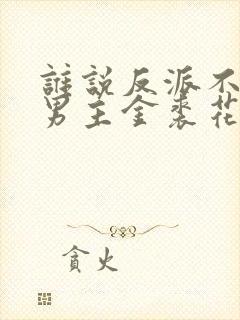 誰說反派不
男主金裘花
貪火